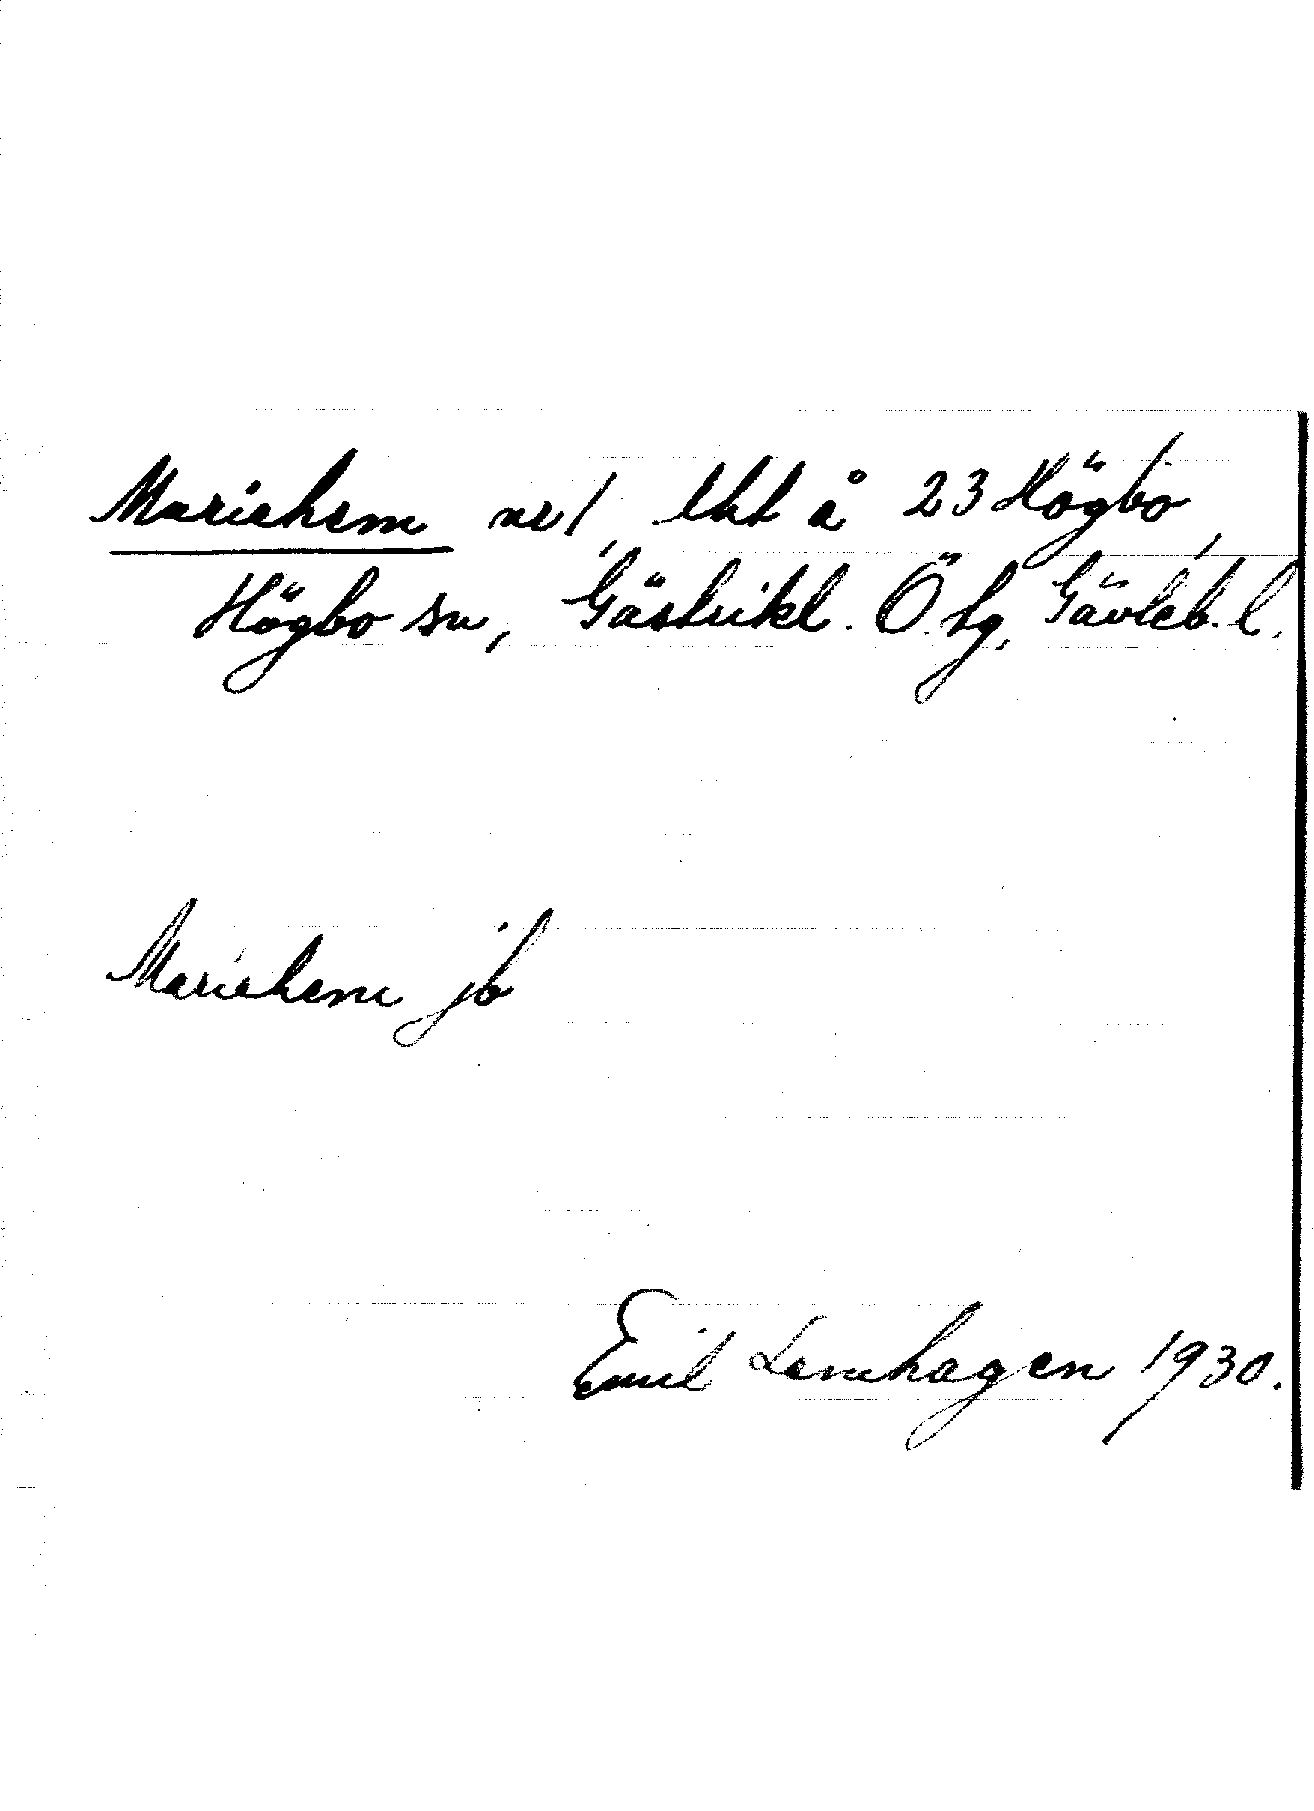 Mariehem nr 1, lht å 23 Högbo,
Högbo sn, Gästrikl. Ö. tg, Gävleb. l.
Mariehem jb
Emil Lennhagen 1930.